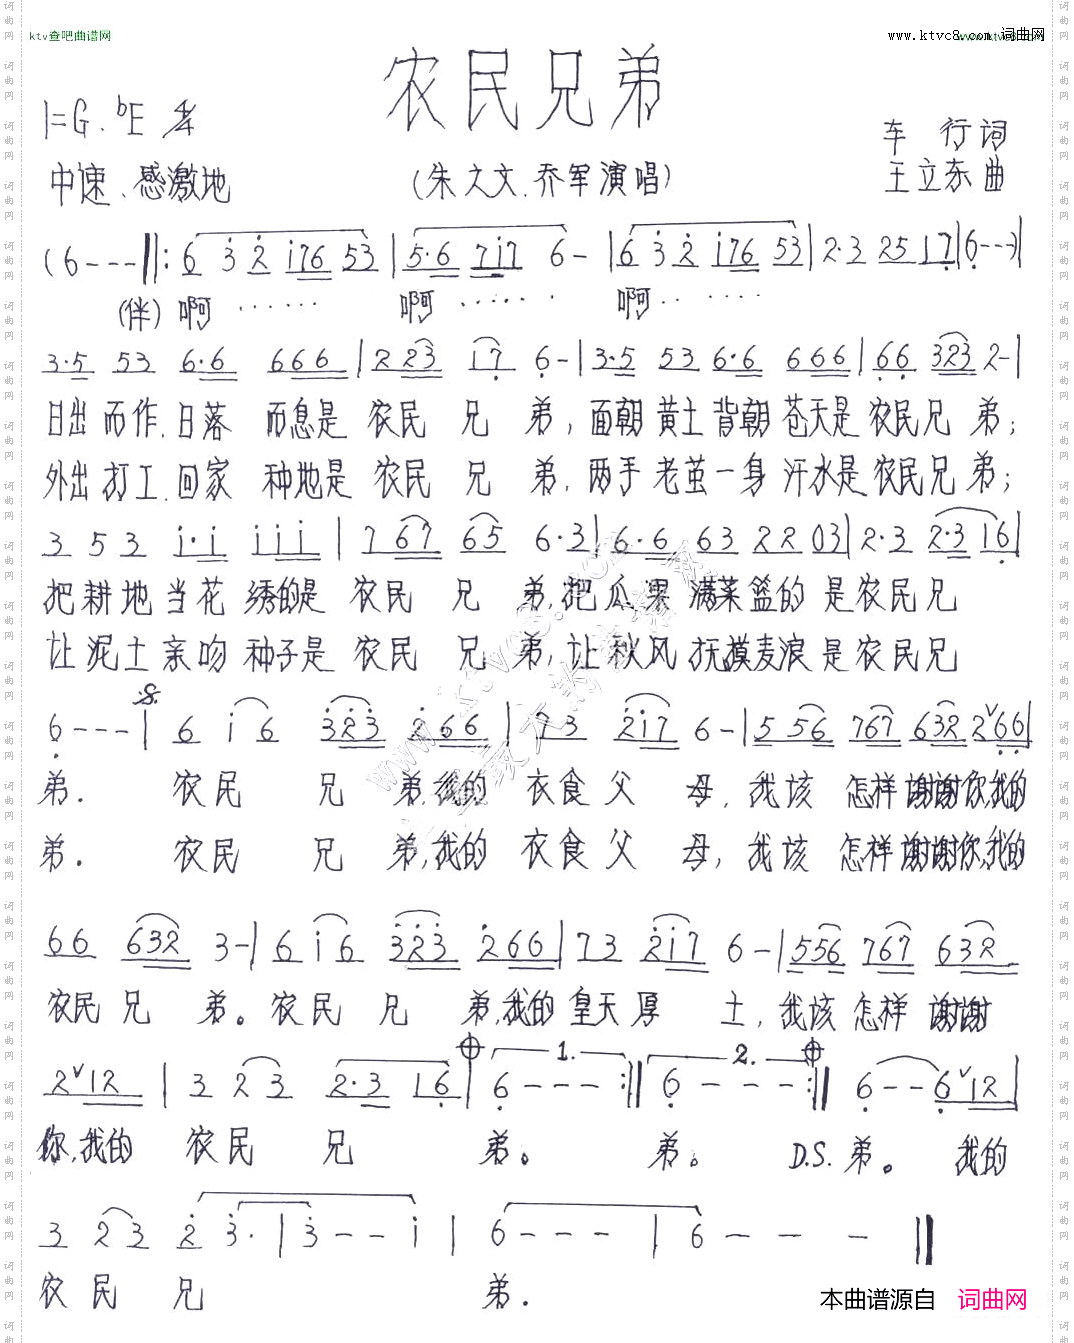 ktv查吧曲谱网
www.ktvc8.com 词曲网
农民兄弟
1=G.ᵇE 4/4
车 行词
中速、感激地
(朱之文.乔军演唱)
王立东曲
(6---‖: 6 3 2 i76 53 | 5·6 7i7 6- | 6 3 2 i76 53 | 2·3 25 17 | 6---) |
(伴) 啊 ······ 啊 ······ 啊·· ····
3·5 53 6·6 666 | 2 223 17 6- | 3·5 53 6·6 666 | 66 323 2- |
日出 而作.日落 而息是 农民 兄 弟, 面朝 黄土 背朝 苍天是 农民兄 弟;
外出 打工.回家 种地是 农民 兄 弟, 两手 老茧 一身 汗水是 农民兄弟;
3 5 3 i·i iii | 7 67 65 6·3 | 6·6 63 22 03 | 2·3 2·3 16 |
把 耕 地 当 花 绣的是 农民 兄 弟,把 瓜 果 满菜篮的 是农民兄
让 泥土亲吻 种子是 农民 兄 弟,让 秋风 抚摸麦浪 是 农民兄
6--- | 6 i 6 323 2 66 | 73 2i7 6- | 5 56 767 632 2ᵛ66 |
弟. 农民 兄 弟,我的 衣食父 母, 我该 怎样 谢谢你,我的
弟. 农民 兄 弟,我的 衣食父 母, 我该 怎样 谢谢你,我的
66 632 3- | 6 i 6 323 2 66 | 73 2i7 6- | 556 767 632
农民 兄 弟。农民 兄 弟,我的 皇天厚 土, 我该 怎样 谢谢
2ᵛ12 | 3 2 3 2·3 16 | 6--- :‖ 6 - - - :‖ 6--6ᵛ12 |
1.
2.
你,我的 农民 兄 弟。 弟。 D.S. 弟。 我的
3 2 3 2 3· | 3--i | 6--- | 6 - - - ‖
农 民 兄 弟.
本曲谱源自 词曲网